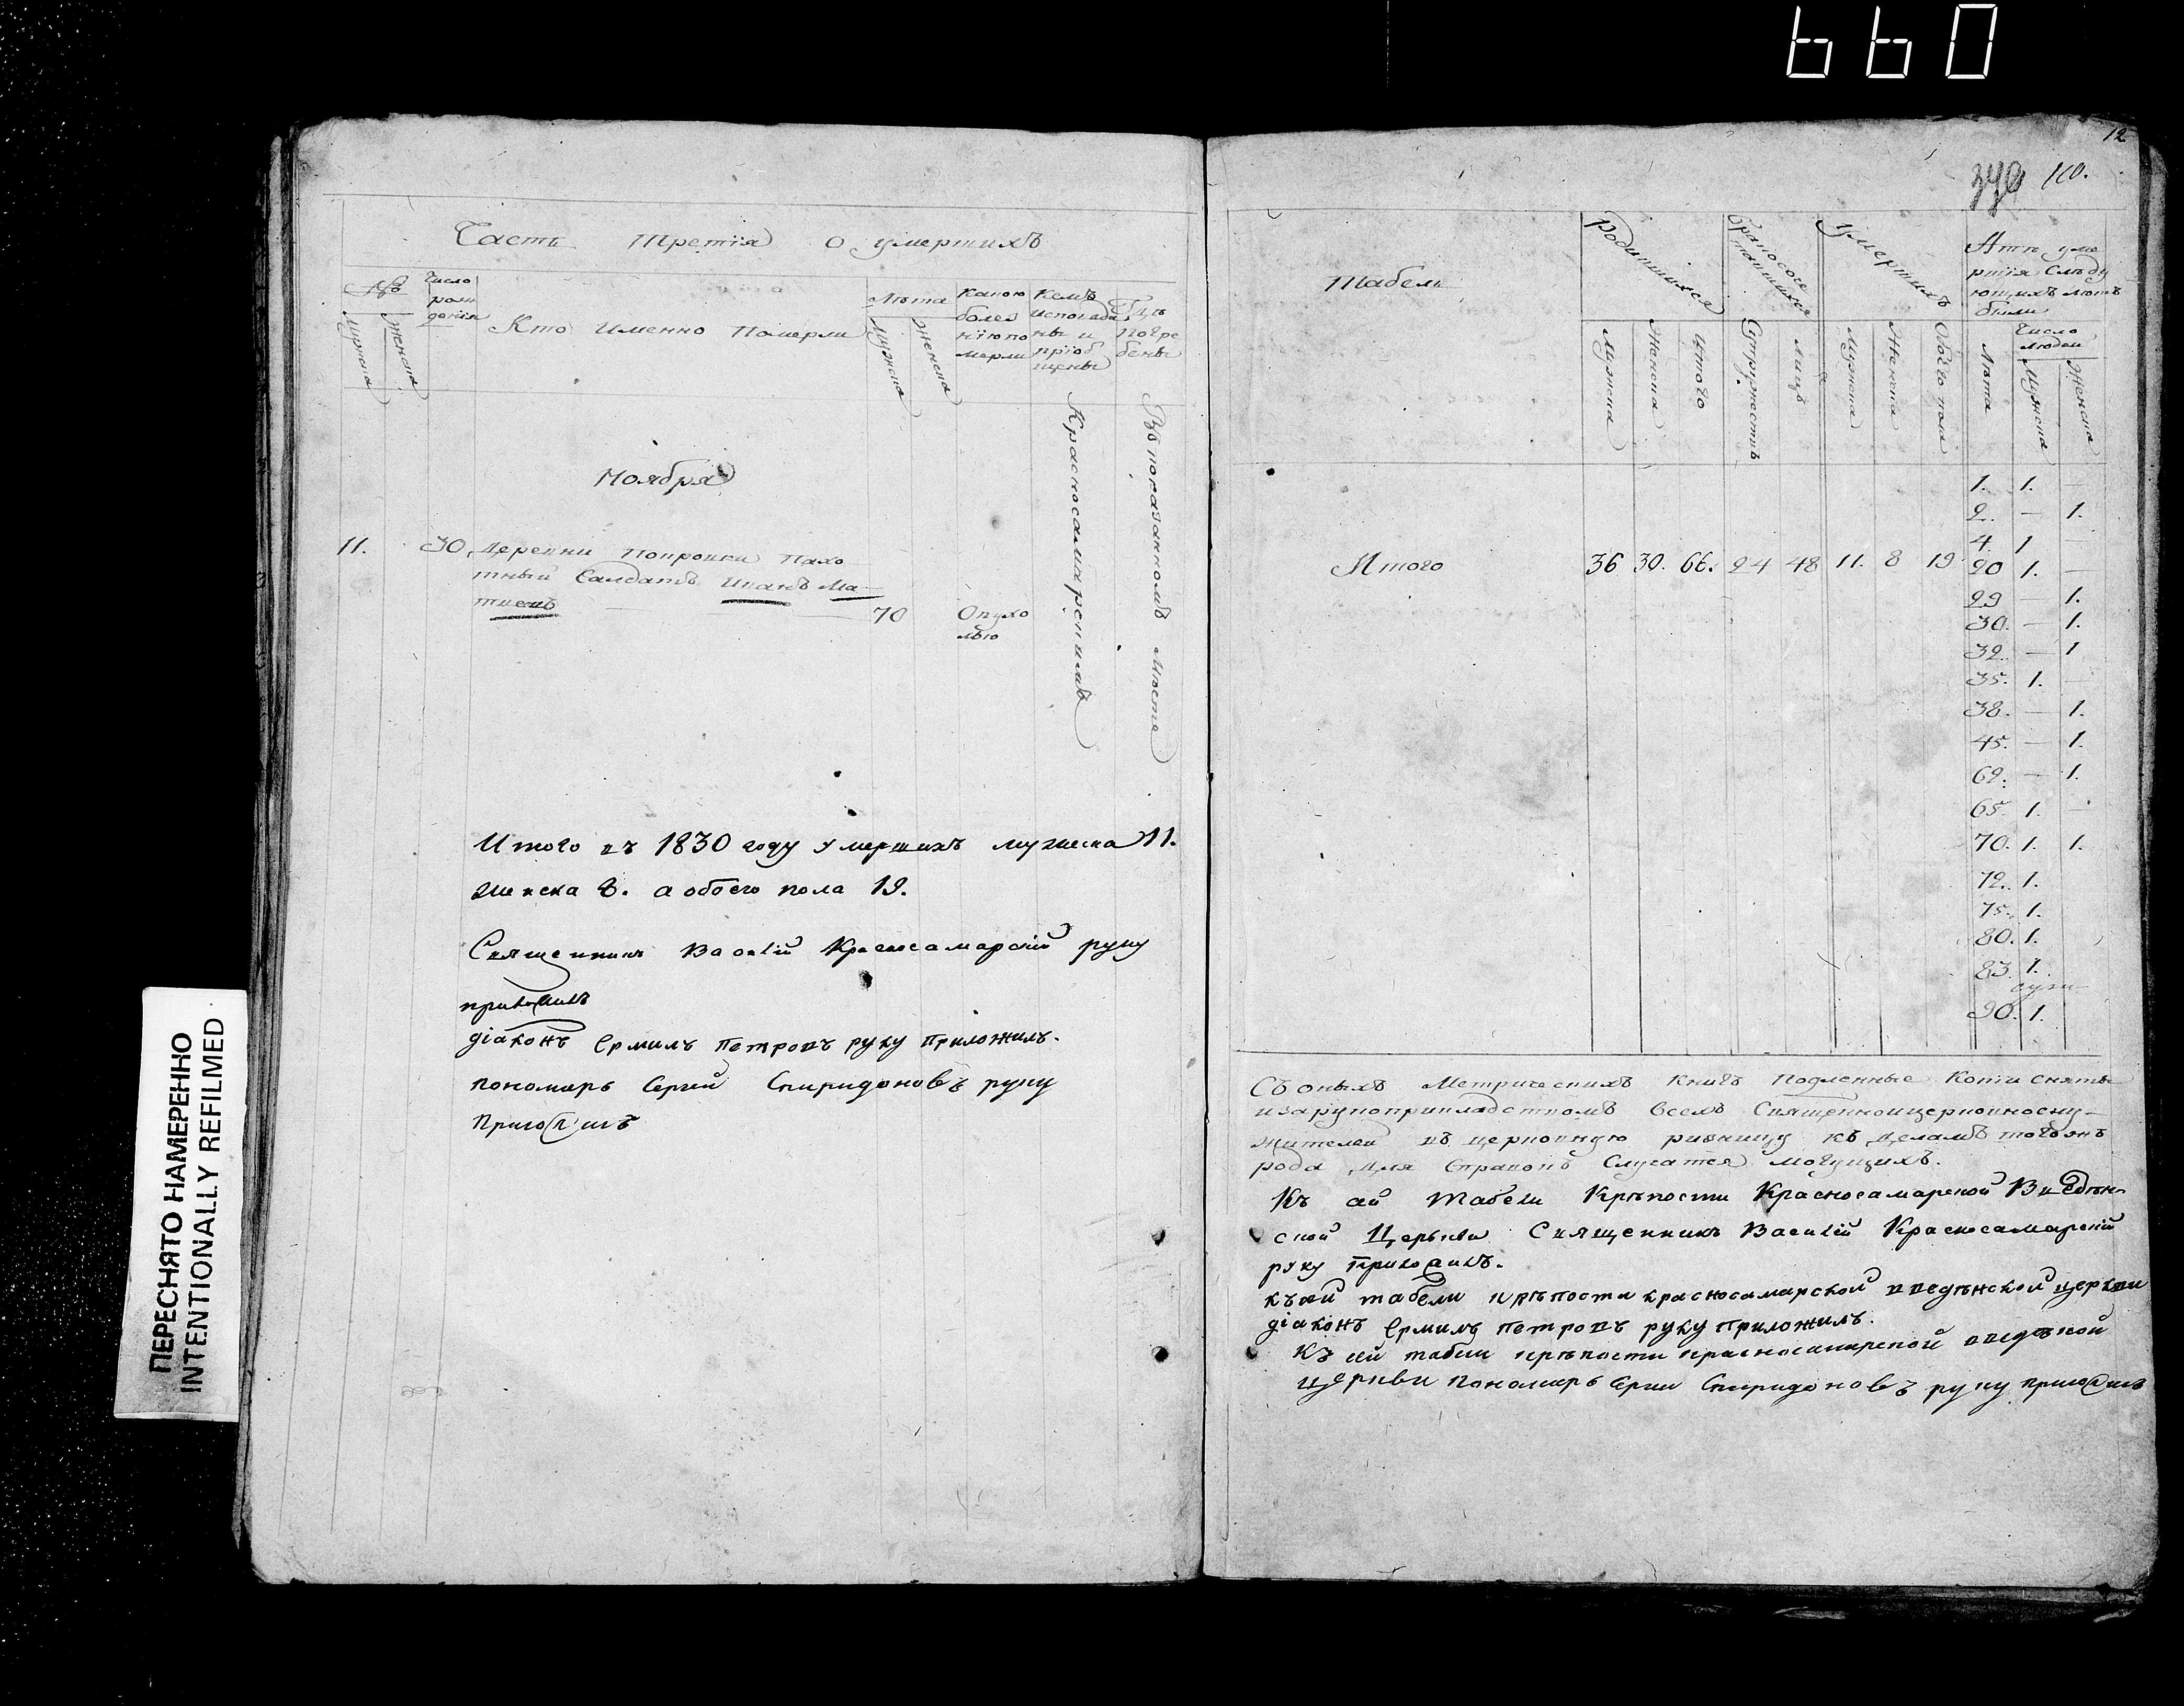 660
12
110.
Часть третія о умершихъ
№
Число
рож
денія
Мужеска
Женска
Кто именно померли
Лѣта
Мужеска
Женска
Какою
болез
нїю по
мерли
Кемъ
исповеда
ны и
прїоб
щены
Гдѣ
погре
бены
Ноября
11. 30. Деревни Покровки Пахо
тный Салдатъ Иванъ Ма
70 Опухо
лью
Красносамарскимъ
Въ показанномъ месте
Итого въ 1830 году умершихъ мужеска 11.
женска 8. а обоего пола 19.
Священникъ Василій Красносамарскій руку
приложилъ
діаконъ Ермилъ Петровъ руку приложилъ.
пономарь Сергій Спиридоновъ руку
приложилъ
Табель
Родившихся
Бракосоче
тавшихся
Умершихъ
ршія слѣду
ющихъ лѣтъ
были
Мужеска
Женска
Итого
Супружествъ
лицъ
Мужеска
Женска
Обоего пола
Лѣта
Число
людей
Мужеска
Женска
Итого 36 30. 66. 24 48 11. 8 19
1. 1. —
2. — 1.
4. 1 —
20 1. —
29 — 1.
30. — 1.
32. — 1
35. 1. —
38. — 1.
45. — 1.
62. — 1.
65. 1. —
70. 1. 1.
72. 1.
75. 1.
80. 1.
83. 1.
90. 1.
Съ оныхъ Метрическихъ книгъ подленные копіи сняты
изарукоприкладствомъ всехъ Священноицерковнослу-
жителей въ церковную ризницу къ деламъ
рода для справокъ случатся могущихъ.
Къ сей табели Крѣпости Красносамарской Введѣн-
ской Церкви Священникъ Василій Красносамарскій
руку приложилъ.
къ сей табели крѣпости красносамарской введѣнской церкви
діаконъ Ермилъ Петровъ руку приложилъ.
Къ сей табели крѣпости красносамарской
церкви пономарь Сергій Спиридоновъ руку приложилъ
ПЕРЕСНЯТО НАМЕРЕННО
INTENTIONALLY REFILMED